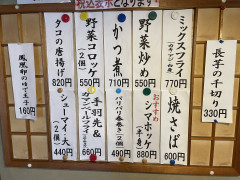 税込表示となります
長芋の千切り
330円
ミックスフライ
770円
焼さば
600円
野菜炒め
550円
おすすめ
シマホッケ
(半身)
880円
かつ煮
710円
パリパリ春巻き(2個)
490円
野菜コロッケ
(2個)
550円
手羽先&
660円
タコの唐揚げ
820円
シューマイ・大
(2個)
440円
鳳凰卵のゆで玉子
160円